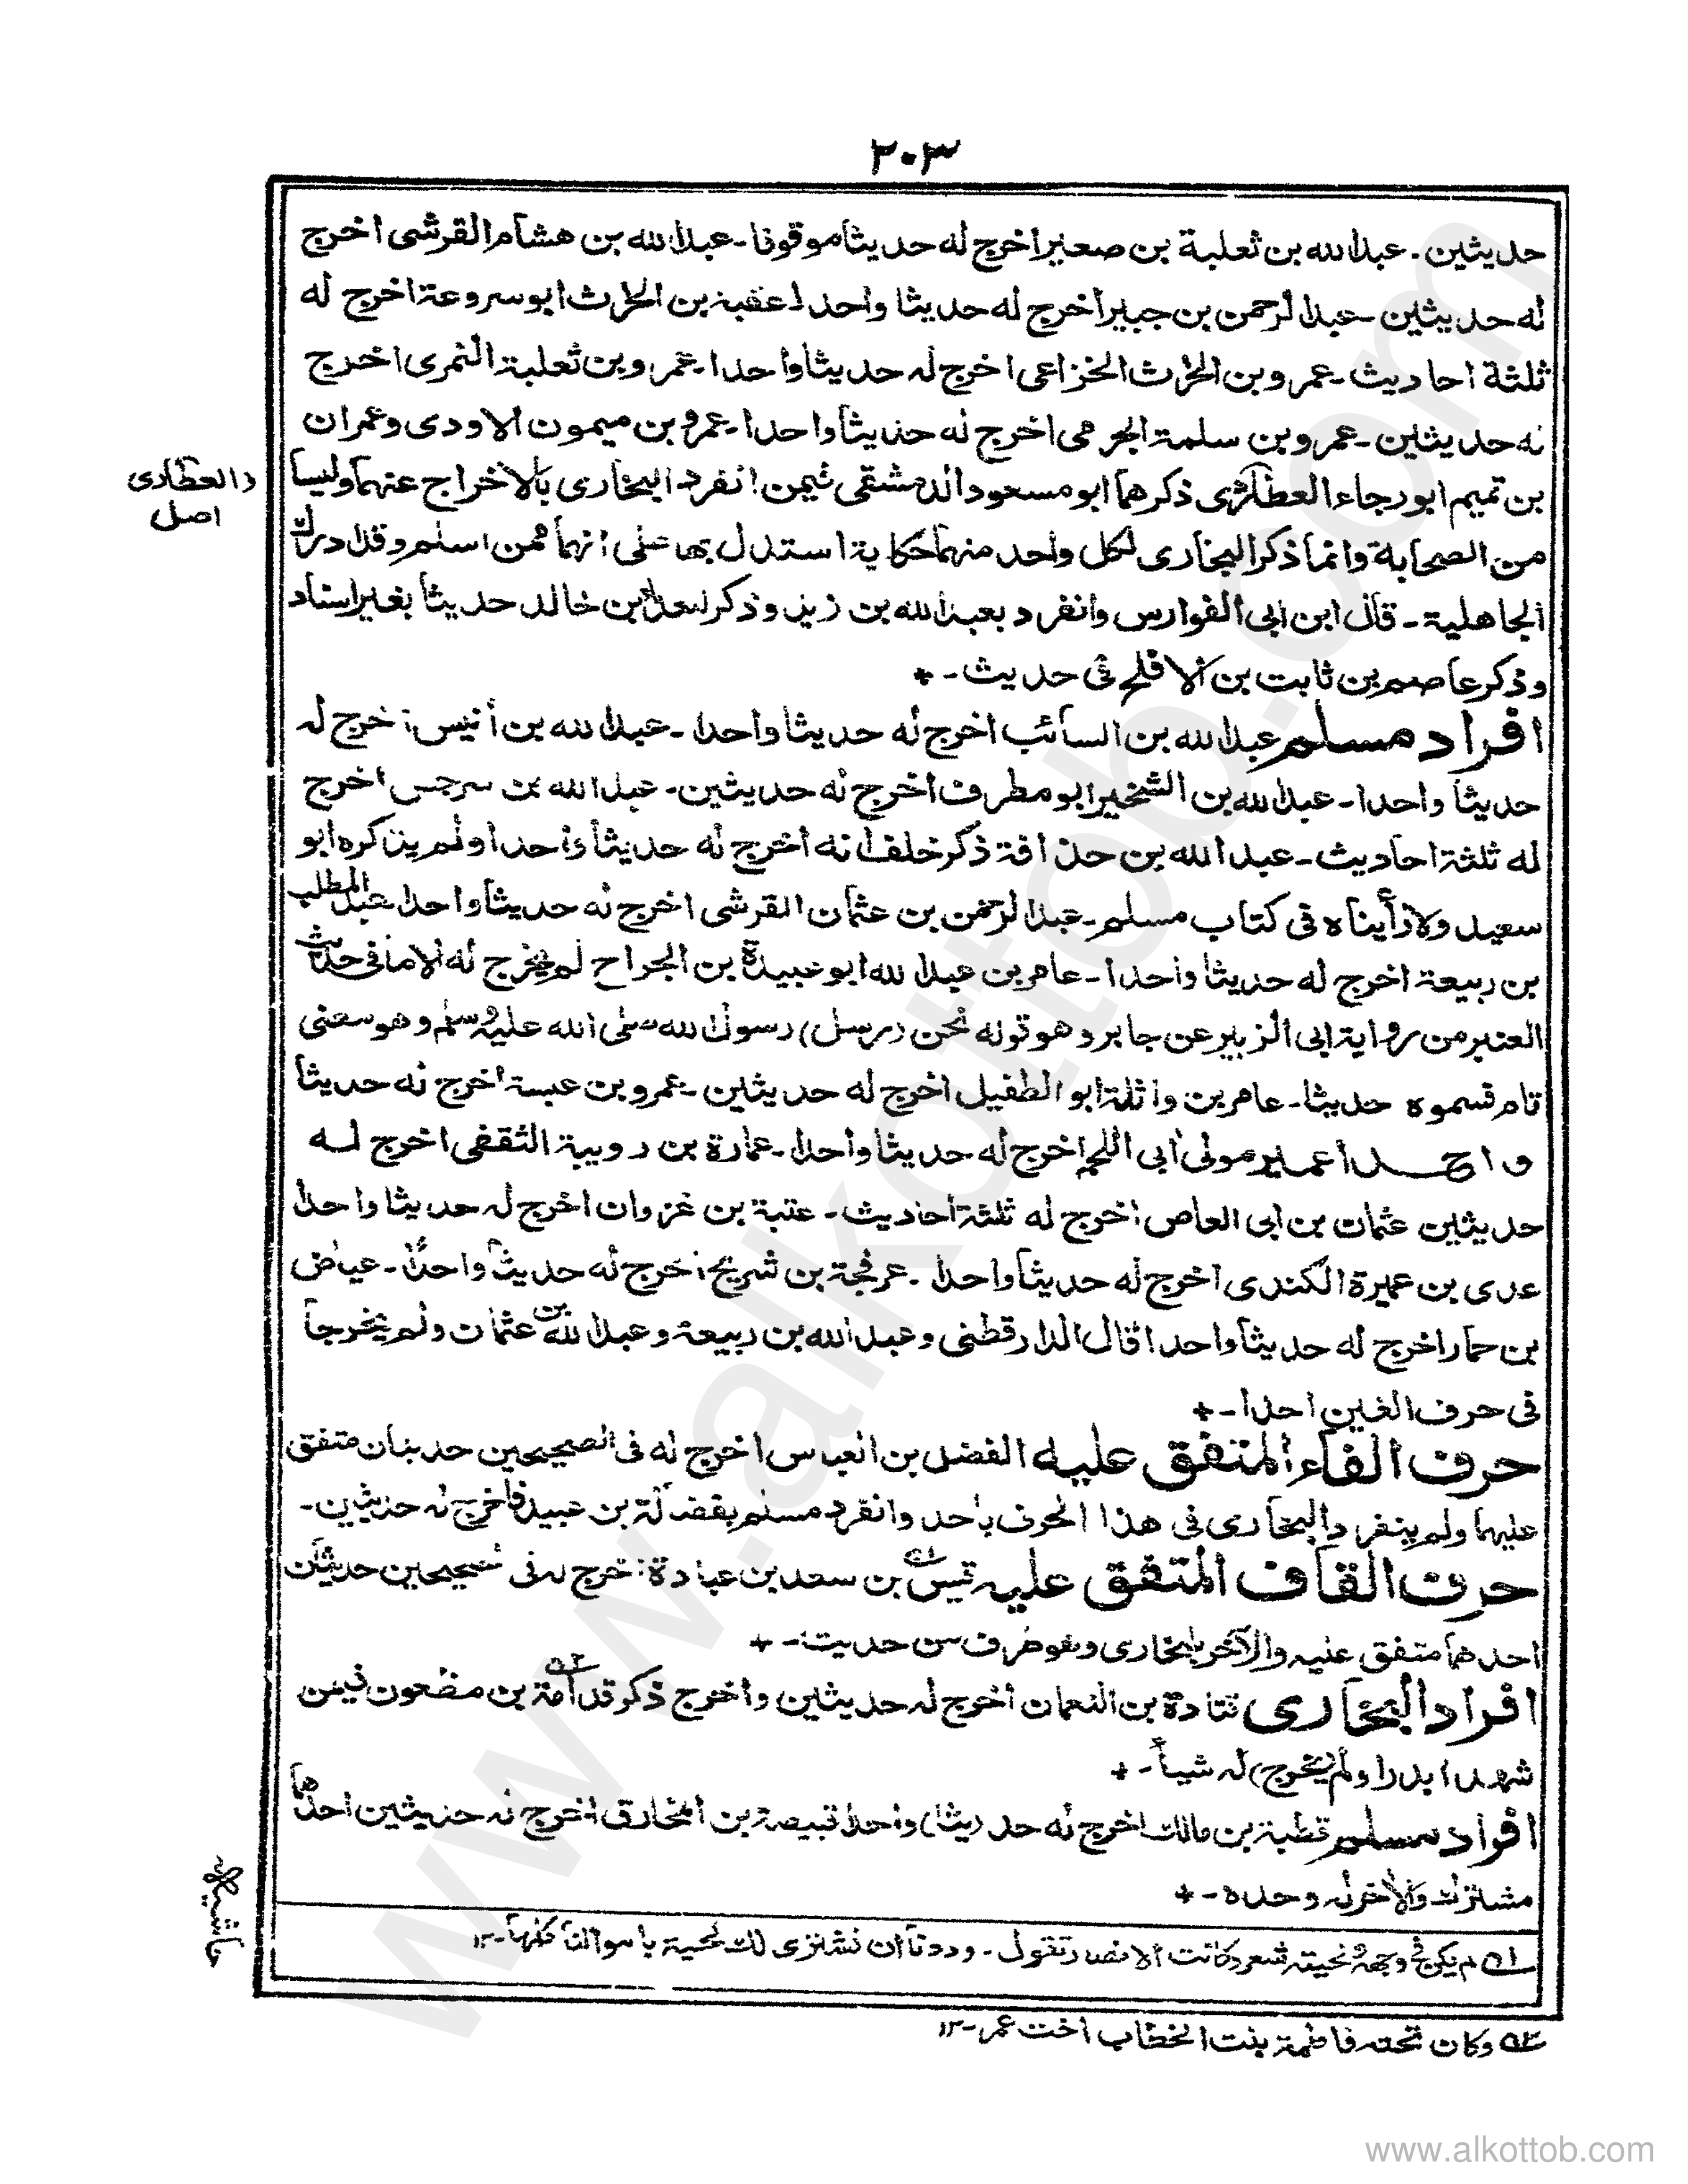 ٣٠٣
حديثين ـ عبدالله بن ثعلبة بن صعير اخرج له حديثا موقوفا ـ عبدالله بن هشام القرشى اخرج
له حديثين ـ عبدالرحمن بن جبير اخرج له حديثا واحدا عقبة بن الحرث ابو سروعة اخرج له
ثلثة احاديث ـ عمرو بن الحرث الخزاعى اخرج له حديثا واحدا ـ عمرو بن ثعلبة النمرى اخرج
له حديثين ـ عمرو بن سلمة الجرمى اخرج له حديثا واحدا ـ عمرو بن ميمون الاودى وعمران
بن تميم ابو رجاء العطاردى ذكرهما ابو مسعود الدمشقى فيمن انفرد البخارى بالاخراج عنهما وليسا
والعطاردى
اصل
من الصحابة وانما ذكر البخارى لكل واحد منهما حكاية استدل بها على انهما ممن اسلم وقد ادرك
الجاهلية ـ قال ابن ابى الفوارس وانفرد بعبدالله بن زيد وذكر بن خالد حديثا بغير اسناد
وذكر عاصم بن ثابت بن الافلح فى حديث ـ +
افراد مسلم عبدالله بن السائب اخرج له حديثا واحدا ـ عبدالله بن أنيس اخرج له
حديثا واحدا ـ عبدالله بن الشخير ابو مطرف اخرج له حديثين ـ عبدالله بن سرجس اخرج
له ثلثة احاديث ـ عبدالله بن حذافة ذكر خلف انه اخرج له حديثا واحدا ولم يذكره ابو
سعيد ولا رأيناه فى كتاب مسلم ـ عبدالرحمن بن عثمان القرشى اخرج له حديثا واحدا عبدالمطلب
بن ربيعة اخرج له حديثا واحدا ـ عامر بن عبدالله ابو عبيدة بن الجراح لم يخرج له الا ما فى حديث
العنبر من رواية ابى الزبير عن جابر وهو قوله نحن (رسل) رسول الله صلى الله عليه وسلم وهو معنى
تام قسموه حديثا ـ عامر بن واثلة ابو الطفيل اخرج له حديثين ـ عمرو بن عبسة اخرج له حديثا
واحدا عمير مولى أبى اللحم اخرج له حديثا واحدا ـ عمارة بن رويبة الثقفى اخرج له
حديثين عثمان بن ابى العاص اخرج له ثلثة احاديث ـ عتبة بن غزوان اخرج له حديثا واحدا
عدى بن عميرة الكندى اخرج له حديثا واحدا ـ عرفجة بن شريح اخرج له حديثا واحدا ـ عياض
بن حمار اخرج له حديثا واحدا قال الدارقطنى وعبدالله بن ربيعة وعبدالله بن عثمان ولم يخرجا
فى حرف الغين احدا ـ +
حرف الفاء المتفق عليه الفضل بن العباس اخرج له فى الصحيحين حديثان متفق
عليهما ولم ينفرد البخارى فى هذا الحرف باحد وانفرد مسلم بفضالة بن عبيد فاخرج له حديثين ـ
حرف القاف المتفق عليه قيس ١ه بن سعد بن عبادة اخرج له فى صحيحين حديثان
احدهما متفق عليه والآخر بالبخارى وهو طرف من حديث ـ +
افراد البخارى قتادة بن النعمان اخرج له حديثين واخرج ذكر قدامة ٢ه بن مظعون فيمن
شهد ابدرا ولم (يخرج) له شيأ ـ +
افراد مسلم قطبة بن مالك اخرج له حد (يثا) واحدا قبيصة بن المخارق اخرج له حديثين احدهما
مشترك والاخر له وحده ـ +
حاشيه
١ه لم يكن فى وجهه لحيته شعر وكانت الانصار تقول ـ وددنا أن نشترى لك لحية باموالنا كلها ـ ١٢
٢ه وكان تحته فاطمة بنت الخطاب اخت عمر ـ ١٢
www.alkottob.com
www.alkottob.com